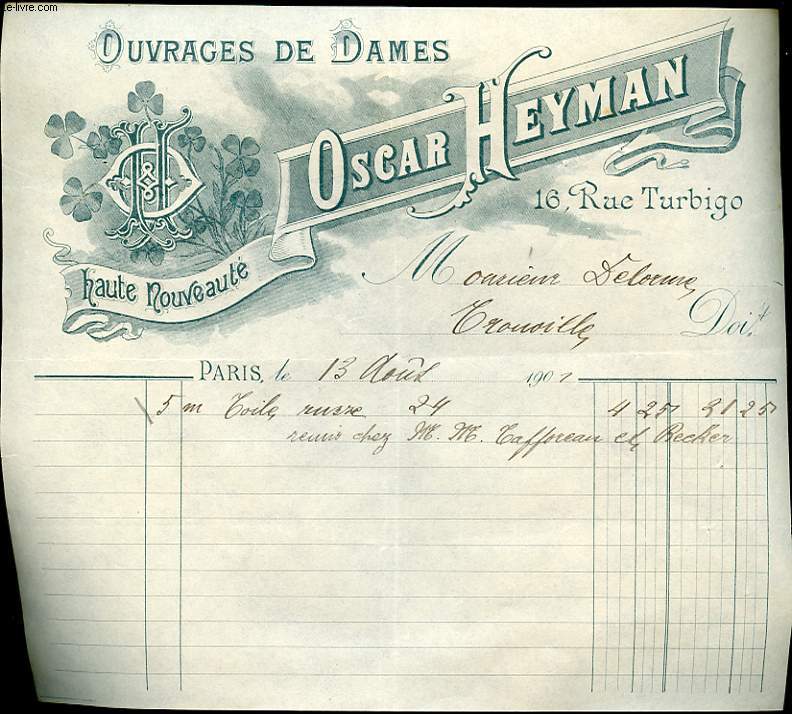 le-livre.com
OUVRAGES DE DAMES
OSCAR HEYMAN
16, Rue Turbigo
OH
haute nouveauté
Monsieur Delorme,
Trouville, Doit
PARIS, le 13 Août 1901
5 m Toile russe 24 4 25 21 25
remis chez M. M. Tafforeau et Becker